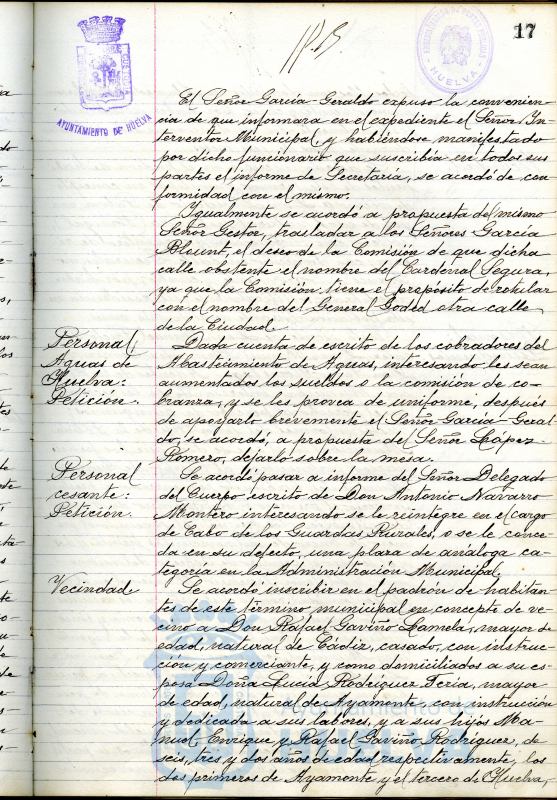 17
AYUNTAMIENTO DE HUELVA
HUELVA
El Señor García-Geraldo expuso la convenien-
cia de que informara en el expediente el Señor In-
terventor Municipal, y habiéndose manifestado
por dicho funcionario que suscribia en todos sus
partes el informe de Secretaría, se acordó de con-
formidad con el mismo.
Igualmente se acordó a propuesta del mismo
Señor Gestor, trasladar a los Señores García
Blount, el deseo de la Comisión de que dicha
calle obstente el nombre del Cardenal Segura,
ya que la Comisión tiene el propósito de rotular
con el nombre del General Goded otra calle
de la Ciudad.
Personal
Aguas de
Huelva:
Petición.
Dada cuenta de escrito de los cobradores del
Abastecimiento de Aguas, interesando les sean
aumentados los sueldos o la comisión de co-
branza, y se les provea de uniforme; después
de apoyarlo brevemente el Señor García-Geral-
do, se acordó, a propuesta del Señor López-
Romero, dejarlo sobre la mesa.
Personal
cesante:
Petición.
Se acordó pasar a informe del Señor Delegado
del Cuerpo escrito de Don Antonio Navarro
Montero interesando se le reintegre en el cargo
de Cabo de los Guardas Rurales, o se le conce-
da en su defecto, una plaza de análoga ca-
tegoría en la Administración Municipal.
Vecindad.
Se acordó inscribir en el padrón de habitan-
tes de este término municipal en concepto de ve-
cino a Don Rafael Gaviño Lamela, mayor de
edad, natural de Cádiz, casado, con instruc-
ción y comerciante, y como domiciliados a su es-
posa Doña Lucía Rodríguez Feria, mayor
de edad, natural de Ayamonte, con instrucción
y dedicada a sus labores, y a sus hijos Ma-
nuel, Enrique y Rafael Gaviño Rodríguez, de
seis, tres y dos años de edad respectivamente, los
dos primeros de Ayamonte y el tercero de Huelva,